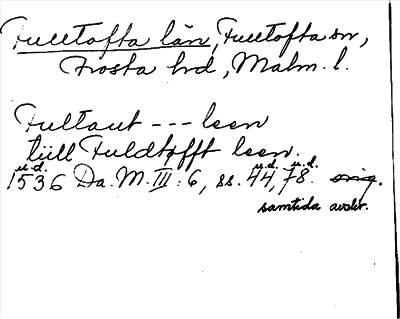 Fulltofta län, Fulltofta sn,
Frosta hrd, Malm. l.
Fultaut --- leen
tiill Fuldtofft leen.
u.d. u.d. u.d.
1536 Da. M. III : 6, ss. 44, 78. orig.
samtida avskr.